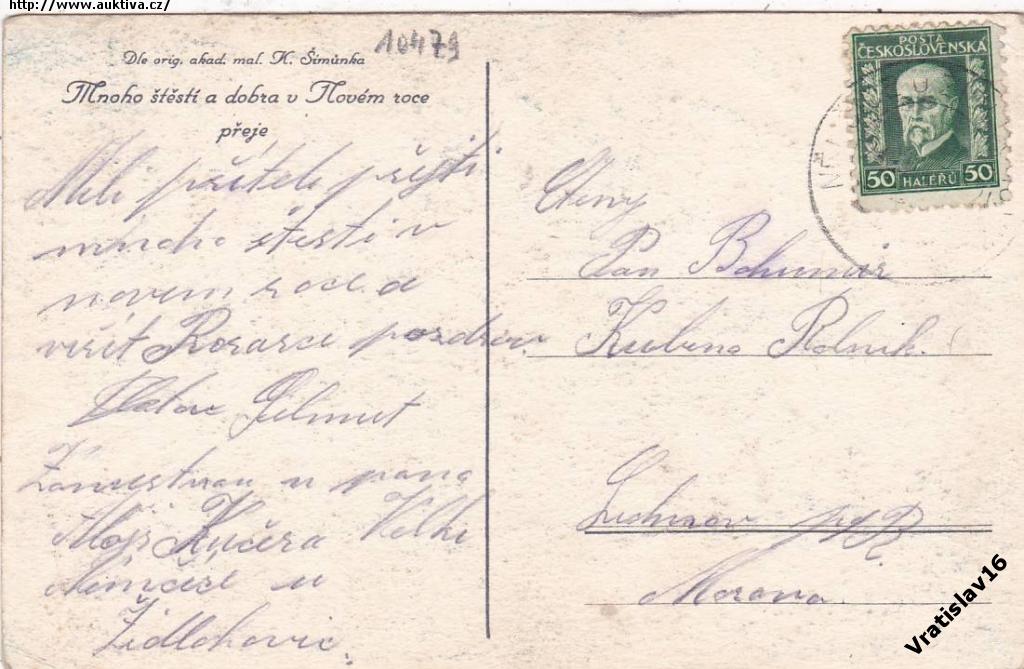 http://www.auktiva.cz/
10479
Dle orig. akad. mal. K. Šimůnka
Mnoho štěstí a dobra v Novém roce
přeje
Mili přiteli přeji ti
mnoho štesti v
novem roce a
pozdrav
Zamestnan u pana
Kučera Velke
Nemčice u
Židlohovic.
POSTA
ČESKOSLOVENSKA
50 HALÉŘŮ 50
Cteny
Pan Bohumír
Kubena Rolnik.
Morava.
Vratislav16